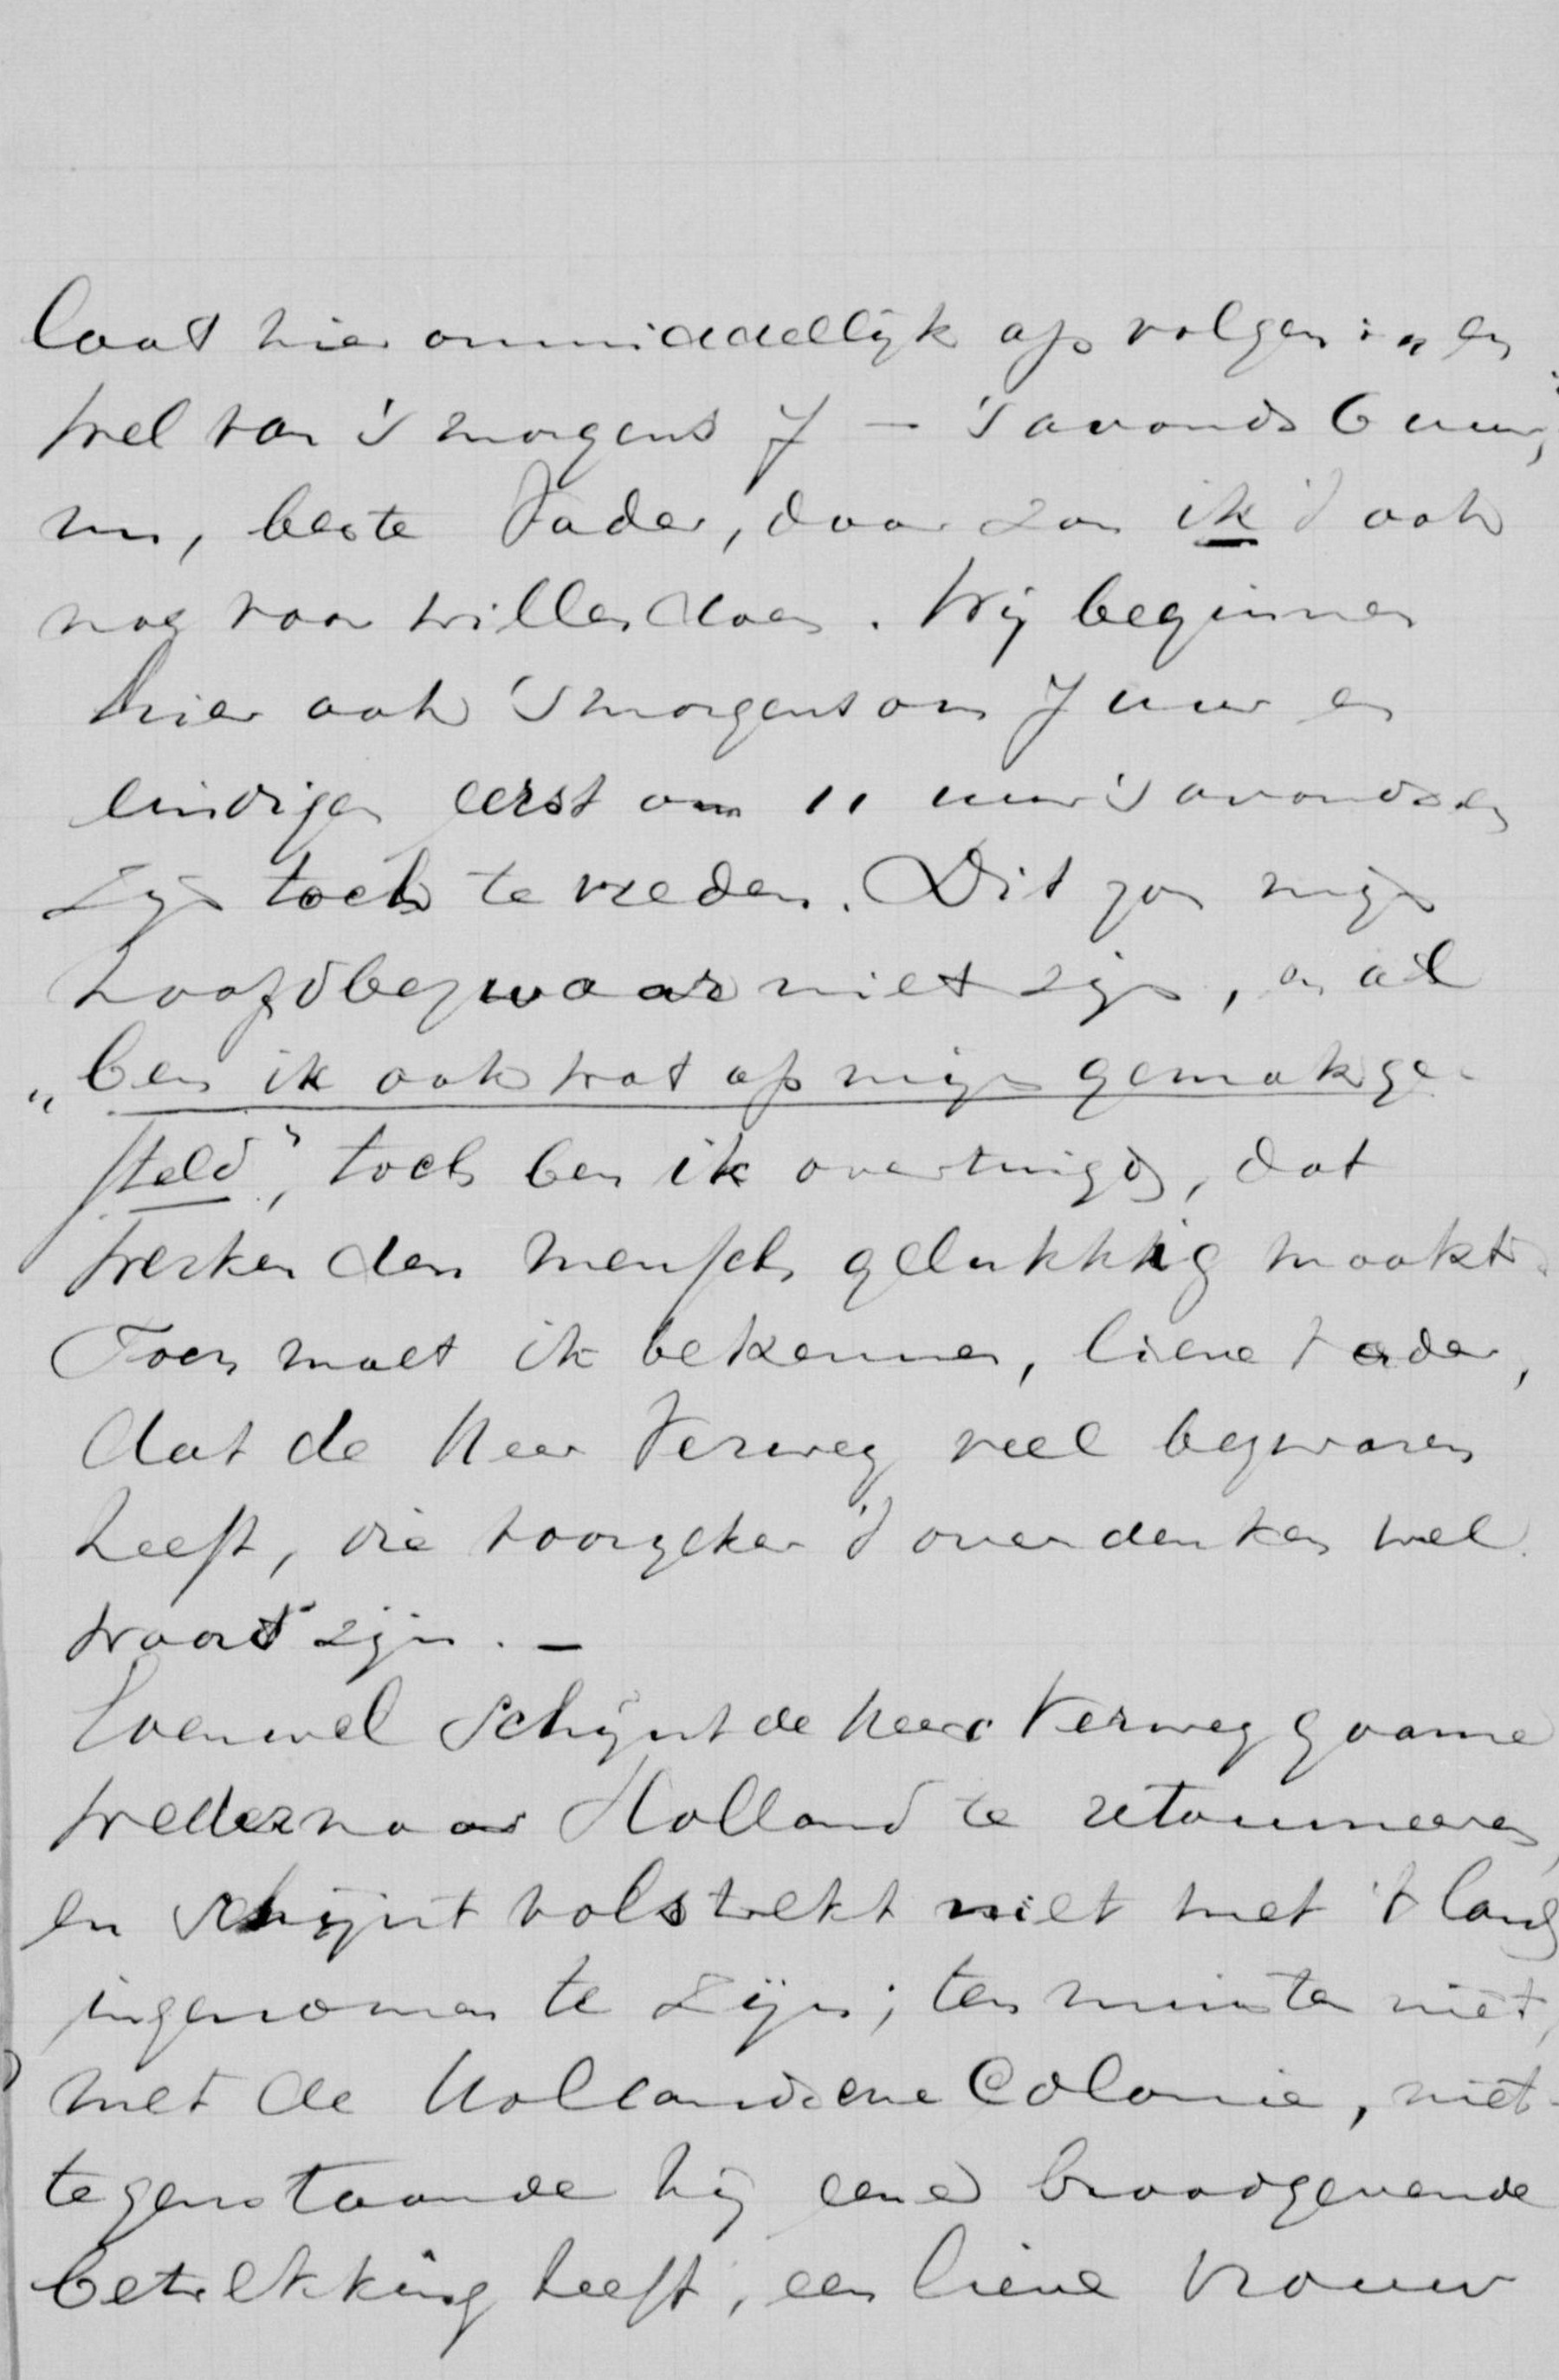 laat hier onmiddellijk op volgen: „en
wel van 's morgens 7 – 's avonds 6 uur,"
nu, beste Vader, daar zou ik 't ook
nog voor willen doen. Wij beginnen
hier ook 's morgens om 7 uur en
eindigen eerst om 11 uur 's avonds en
zijn toch te vreden. Dit zou mijn
hoofdbezwaar niet zijn, en al
„ben ik ook wat op mijn gemak ge-
steld", toch ben ik overtuigd, dat
werken den mensch gelukkig maakt.
Toen moet ik bekennen, lieve Vader,
dat de Heer Verweg veel bezwaren
heeft, die voorzeker 't overdenken wel
waard zijn. –
Evenwel schijnt de Heer Verweg gaarne
weder naar Holland te retourneeren,
en schijnt volstrekt niet met 't land
ingenomen te zijn; ten minsten niet,
met de Hollandsche Colonie, niet-
tegenstaande hij eene broodgevende
betrekking heeft, een lieve vrouw